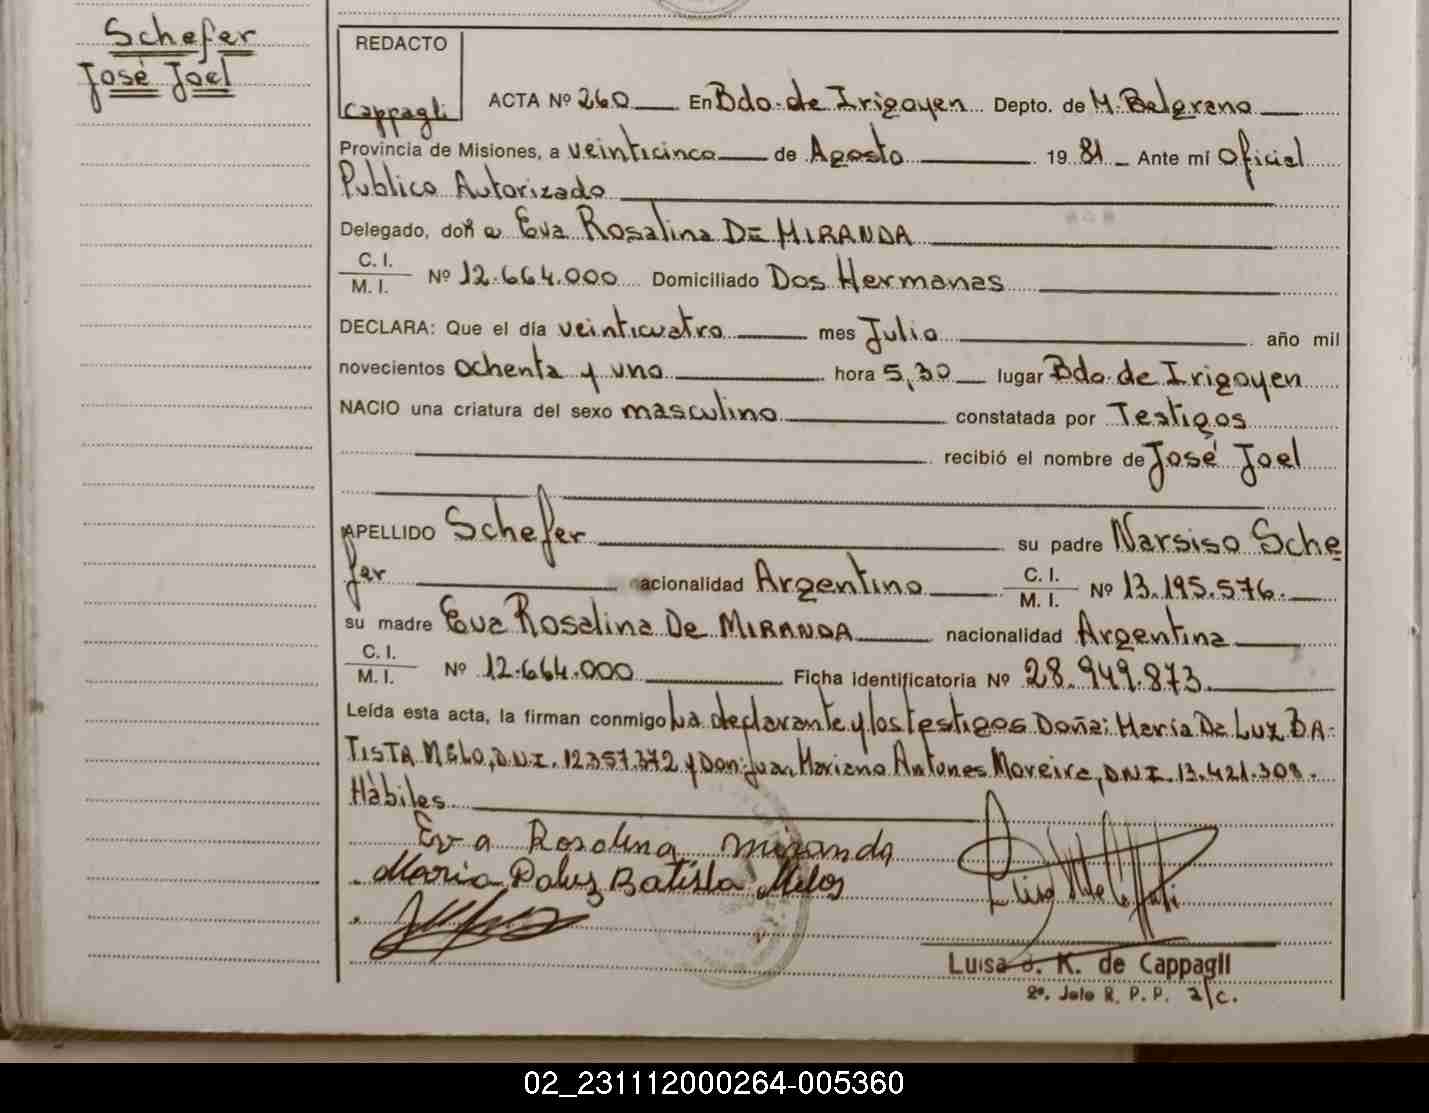 Schefer
José Joel
REDACTO
Cappagli
ACTA Nº 260 En Bdo. de Irigoyen Depto. de M. Belgrano
Provincia de Misiones, a veinticinco de Agosto 19 81 Ante mí Oficial
Publico Autorizado
Delegado, doñ a Eva Rosalina DE MIRANDA
C. I.
M. I. Nº 12.664.000 Domiciliado Dos Hermanas
DECLARA: Que el día veinticuatro mes Julio año mil
novecientos ochenta y uno hora 5,30 lugar Bdo. de Irigoyen
NACIO una criatura del sexo masculino constatada por Testigos
recibió el nombre de José Joel
APELLIDO Schefer su padre Narsiso Sche
fer nacionalidad Argentino C. I. M. I. Nº 13.195.576.
su madre Eva Rosalina De MIRANDA nacionalidad Argentina
C. I.
M. I. Nº 12.664.000 Ficha identificatoria Nº 28.949.873
Leída esta acta, la firman conmigo La declarante y los testigos Doña: María Da Luz BA-
TISTA MELO, D.N.I. 12357.372 y Don: Juan Mariano Antunes Moreira, D.N.I. 13.421.308.
Hàbiles
Eva Rosalina miranda
Maria Daluz Batista Melos
Luisa J. K. de Cappagli
2º. Jefe R. P. P. a/c.
02_231112000264-005360